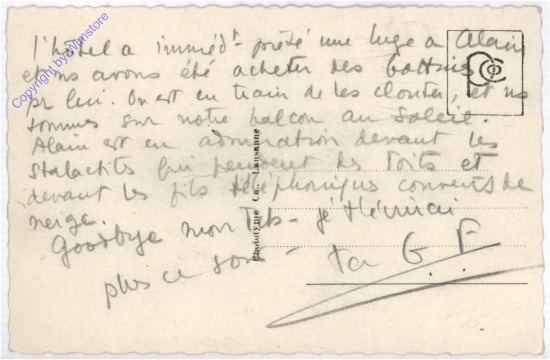 l'hôtel a imméd^t prêté une luge a Alain
et ns avons été acheter des bottines
pr lui. On est en train de les clouter, et ns
sommes sur notre balcon au soleil.
Alain est en admiration devant les
stalactites qui pendent des toits et
devant les fils téléphoniques couverts de
neige.
Goodbye mon - je t'écrirai
plus ce soir - ta G. F
Phototypie Co., Lausanne
Copyright by Wimstore